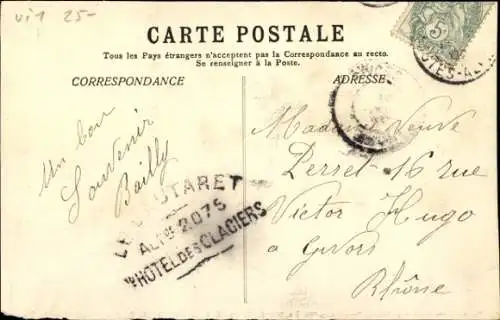 25-
CARTE POSTALE
Tous les Pays étrangers n'acceptent pas la Correspondance au recto.
Se renseigner à la Poste.
CORRESPONDANCE
ADRESSE
5
Un bon
Souvenir
Bailly
LE LAUTARET
ALTde 2075
HOTEL DES GLACIERS
Madame Veuve
Perret 16 rue
Victor Hugo
à Givors
Rhône